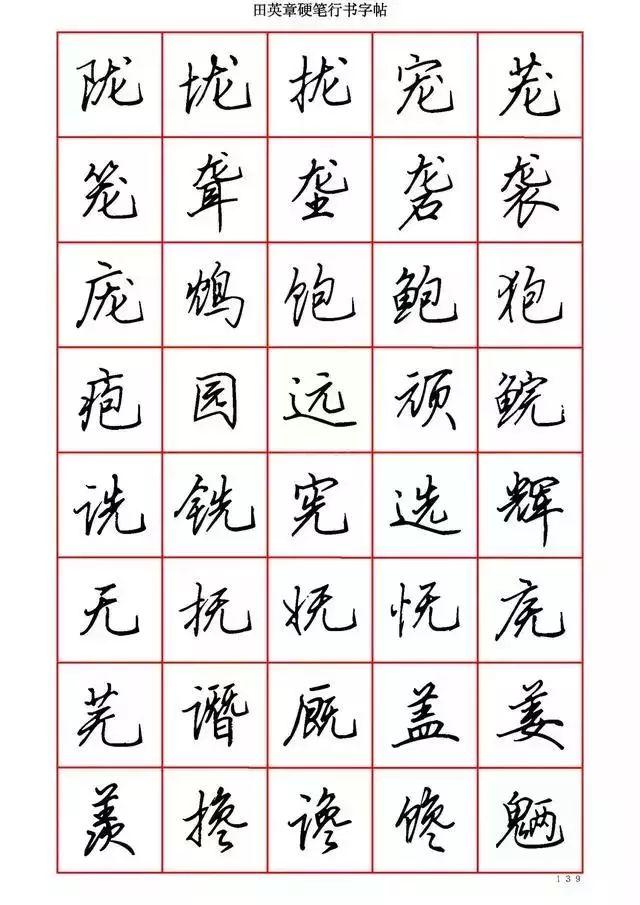 田英章硬笔行书字帖
陇垅拢宠茏
笼聋垄砻袭
庞鸩饱鲍狍
疱园远顽鲩
诜铣宪选辉
无抚妩怃庑
芜谮厩盖姜
羡搀谗馋魉
139